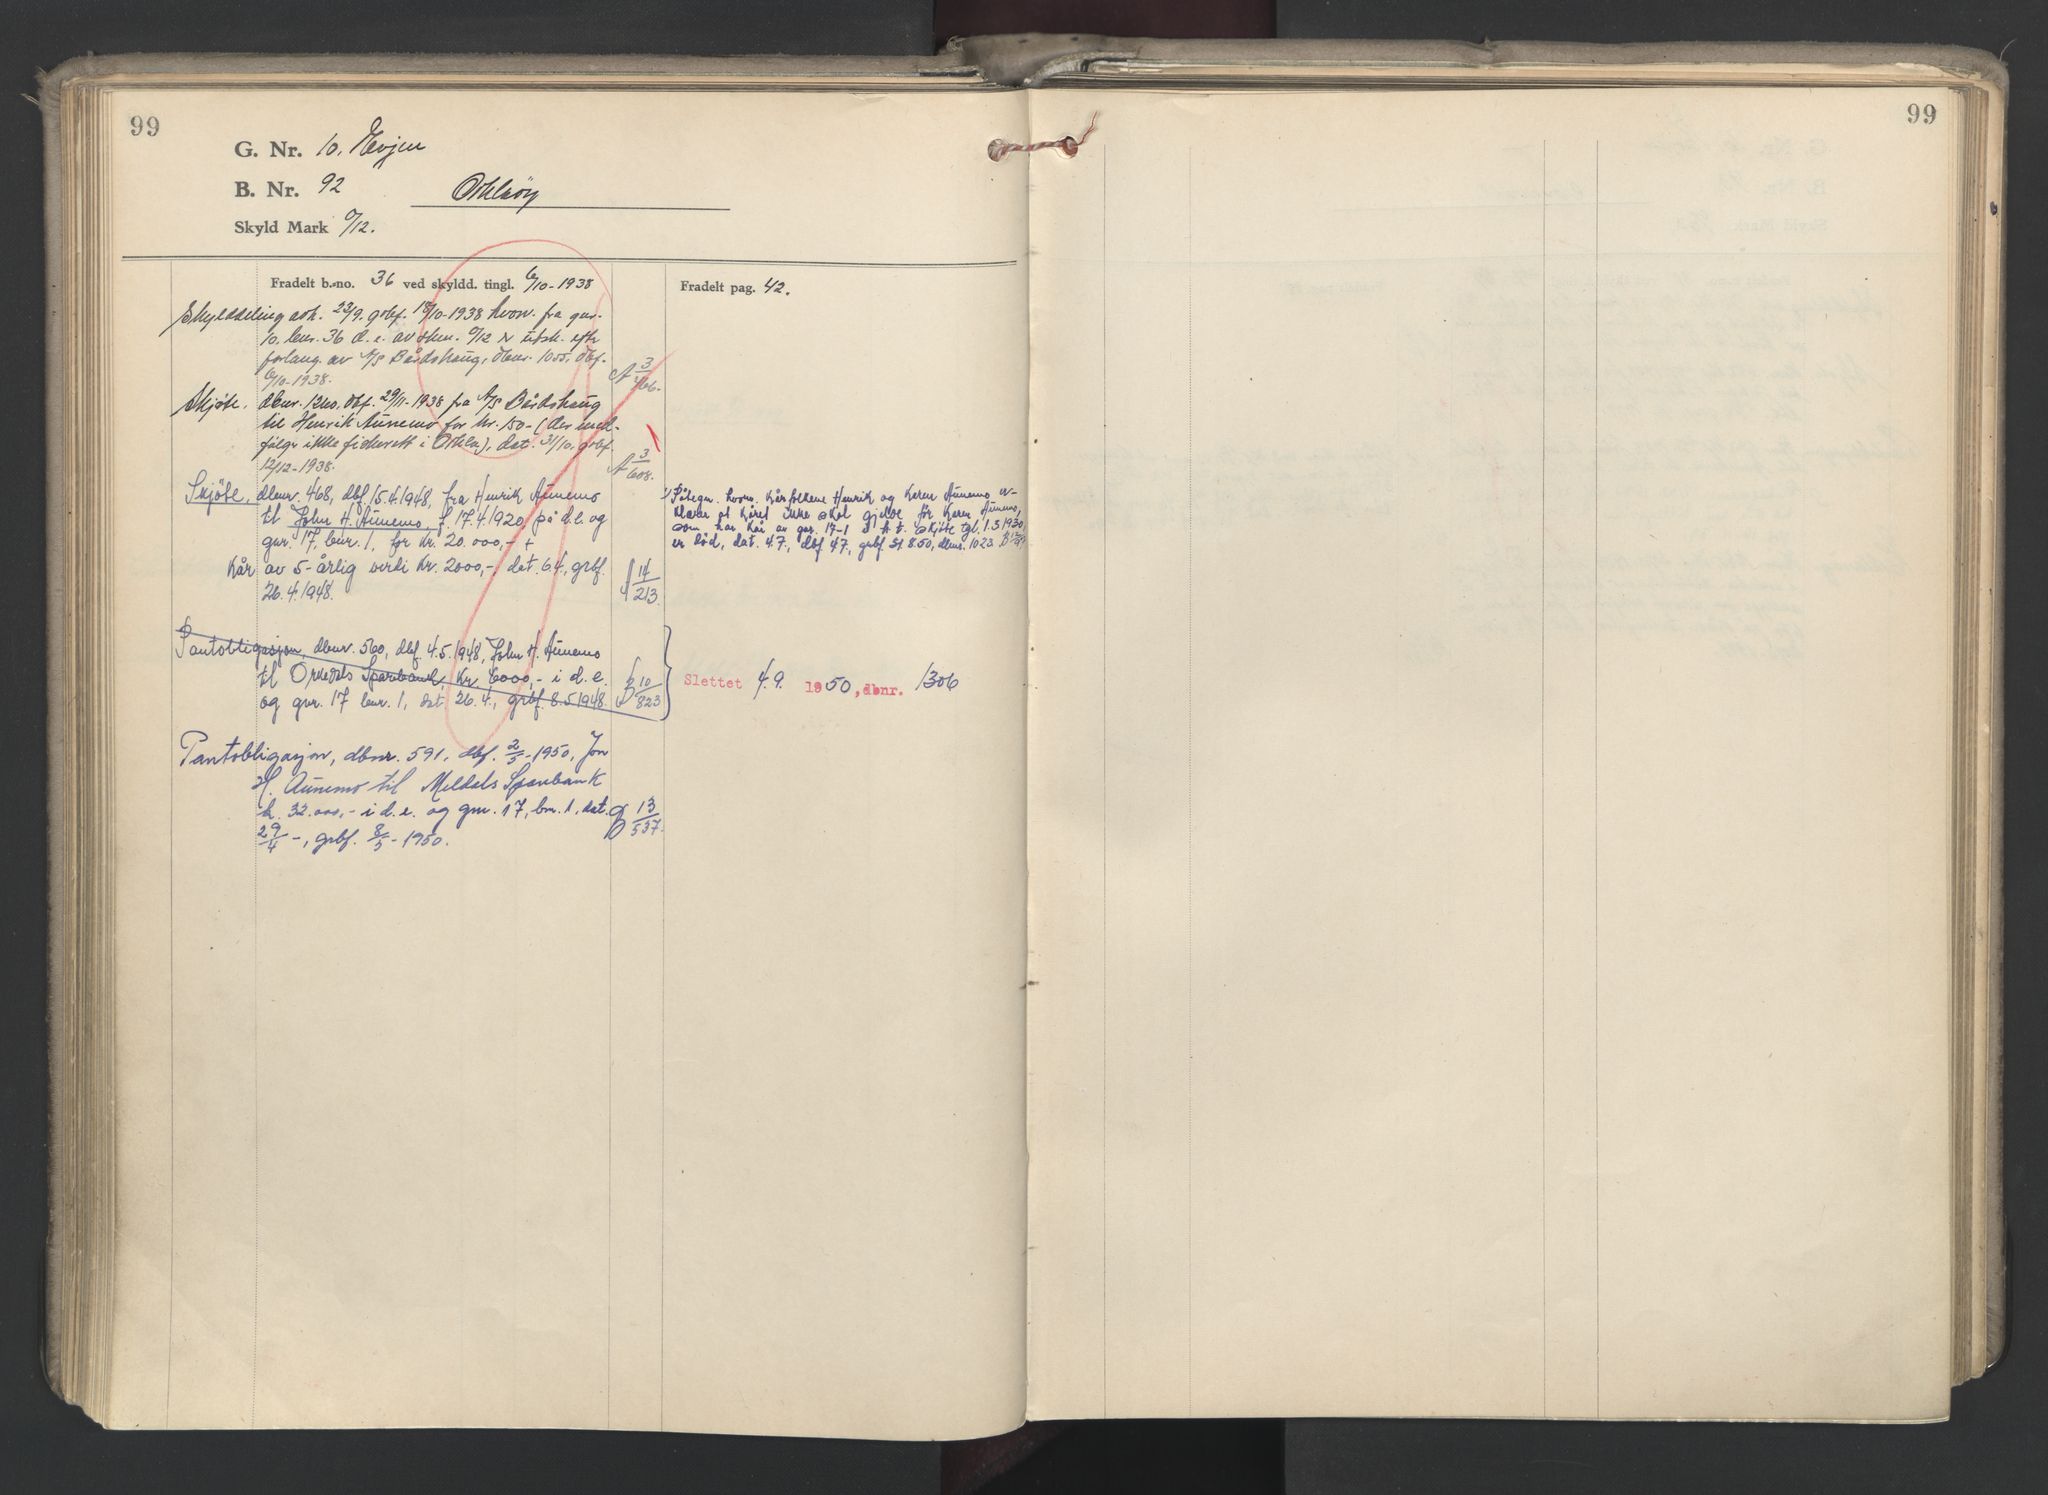 99
G. Nr. 10. Evjen
B. Nr. 92 Orkløy
Skyld Mark 0/12.
Fradelt b.-no. 36 ved skyldd. tingl. 6/10-1938
Fradelt pag. 42.
Skylddeling avh. 23/9. grbf. 18/10-1938 hvorv. fra gnr.
10. bnr. 36 d. e. av skm. 0/12 er utsk. efter
forlang. av A/S Bårdshaug, dbnr. 1055, dbf.
6/10-1938.
A 3/466.
Skjøte, dbnr. 1240, dbf. 29/11-1938 fra A/S Bårdshaug
til Henrik Aunemo for kr. 150- (der med-
følger ikke fiskerett i Orkla), dat. 31/10. grbf.
12/12-1938.
A 3/608.
Skjøte, dbnr. 468, dbf. 15.4.1948, fra Henrik Aunemo
til John H. Aunemo, f. 17.4.1920 på d.e. og
gnr. 17, bnr. 1, for kr. 20.000,- +
Kår av 5-årlig verdi kr. 2000,-, dat. 6.4., grbf.
26.4.1948.
14/213.
Påtegn. hvorv. kårfolkene Henrik og Karen Aunemo er-
klærer at kåret ikke skal gjelde for Karen Aunemo,
som har kår av gnr. 17-1 i h. t. skjøte tgl. 1.3.1930,
er død, dat. 4.7, dbf. 4.7, grbf. 50, dbnr. 1023.
Pantobligasjon, dbnr. 560, dbf. 4.5.1948, John H. Aunemo
til Orkedals Sparebank, kr. 6000,- i d. e.
og gnr. 17 bnr. 1, dat. 26.4., grbf. 8.5.1948.
B 10/823
Slettet 4.9. 1950, dbnr. 1306
Pantobligasjon, dbnr. 591, dbf. 2/5-1950, Jon
H. Aunemo til Meldals Sparebank
k. 32.000,- i d. e. og gnr. 17, bnr. 1, dat.
29/4 -, grbf. 8/5-1950.
B 13/537.
99